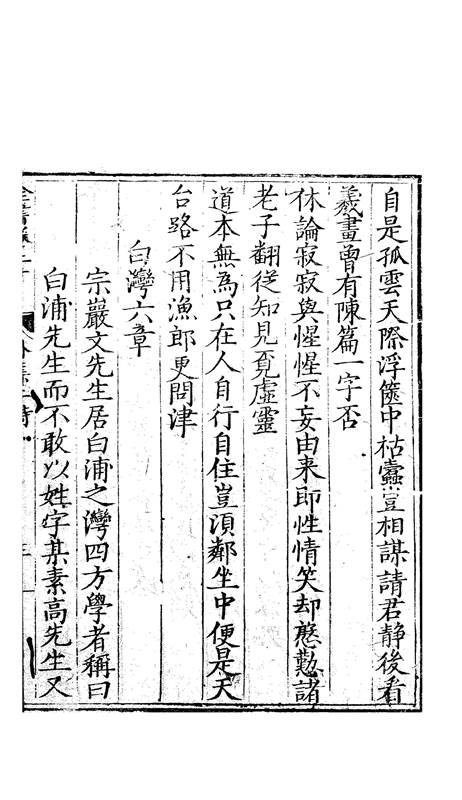 自是孤雲天際浮篋中枯蠹豈相謀請君静後看
羲畫曾有陳篇一字否
休論寂寂與惺惺不妄由来即性情笑却慇懃諸
老子翻從知見覓虛靈
道本無為只在人自行自住豈湏鄰坐中便是天
台路不用漁郎更問津
白灣六章
宗巖文先生居白浦之灣四方學者稱曰
白浦先生而不敢以姓字某素高先生又